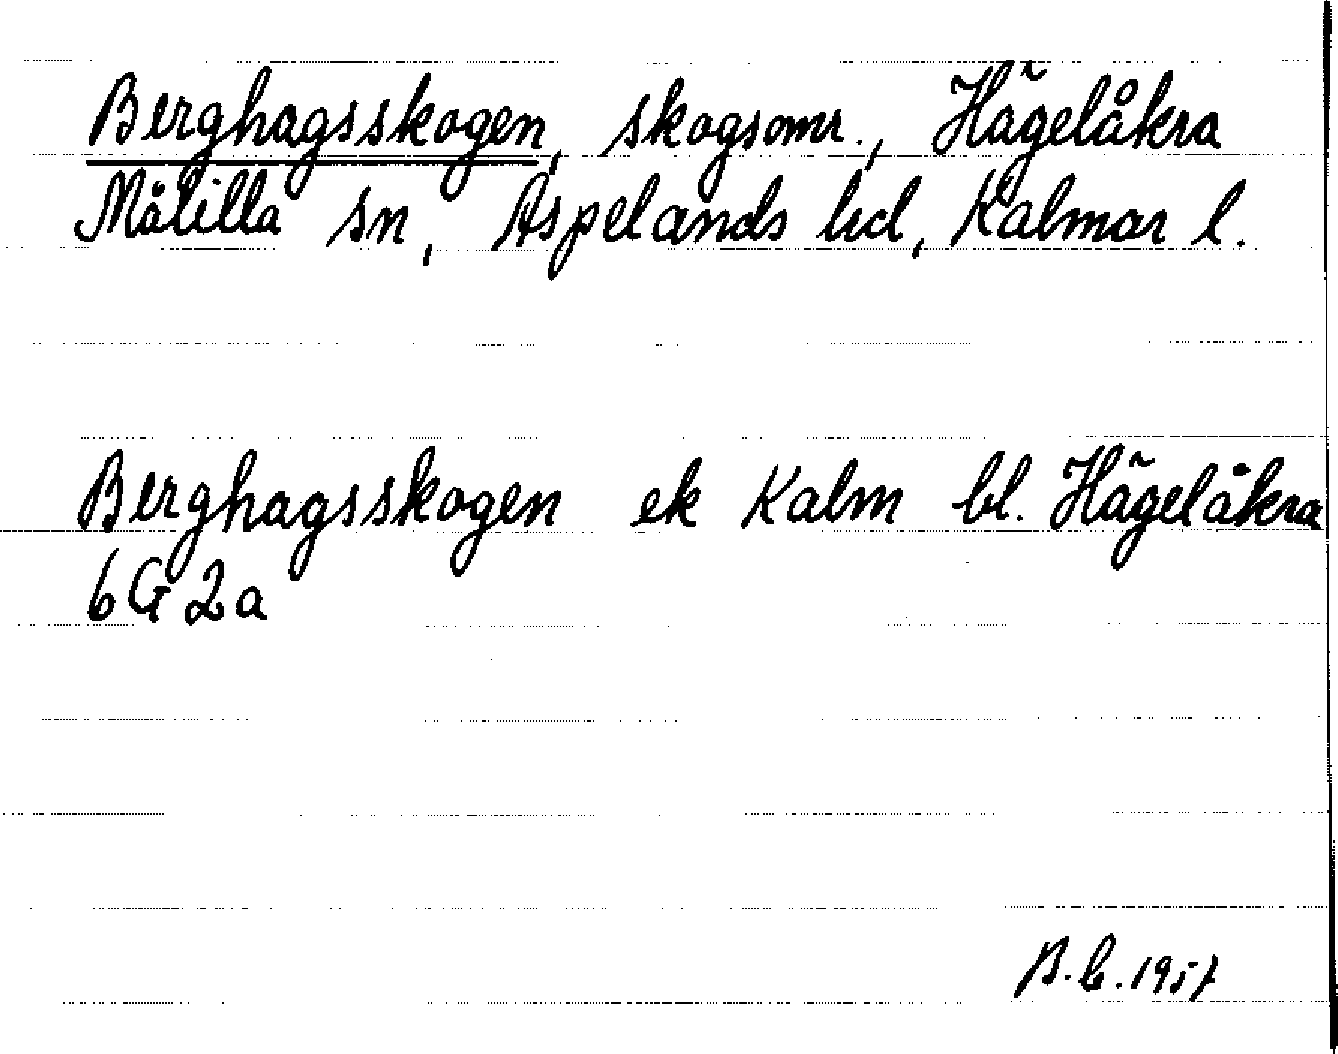 Berghagsskogen, skogsomr., Hägelåkra
Målilla sn, Aspelands hd, Kalmar l.
Berghagsskogen ek Kalm bl. Hägelåkra
6G2a
B.L. 1957